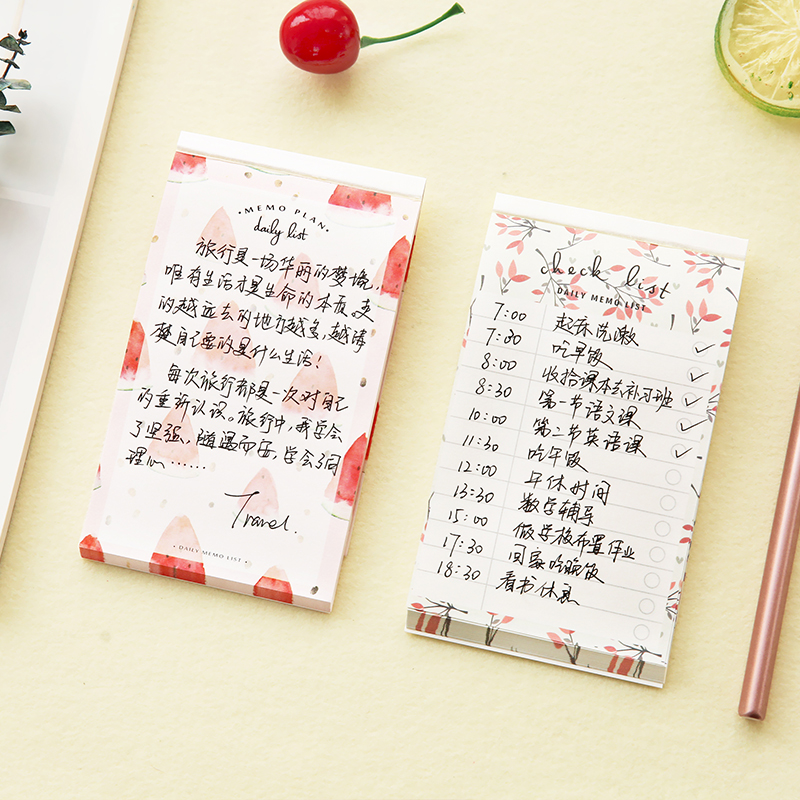 MEMO PLAN
daily list
旅行是一场华丽的梦境,
唯有生活才是生命的本质,走
的越远去的地方越多,越清
楚自己要的是什么生活!
每次旅行都是一次对自己
的重新认识。旅行中,我学会
了坚强,随遇而安,学会了同
理心……
Travel.
DAILY MEMO LIST
check list
DAILY MEMO LIST
7:00 起床洗漱
7:30 吃早饭
8:00 收拾课本去补习班
8:30 第一节语文课
10:00 第二节英语课
11:30 吃午饭
12:00 午休时间
13:30 数学辅导
15:00 做学校布置作业
17:30 回家吃晚饭
18:30 看书休息